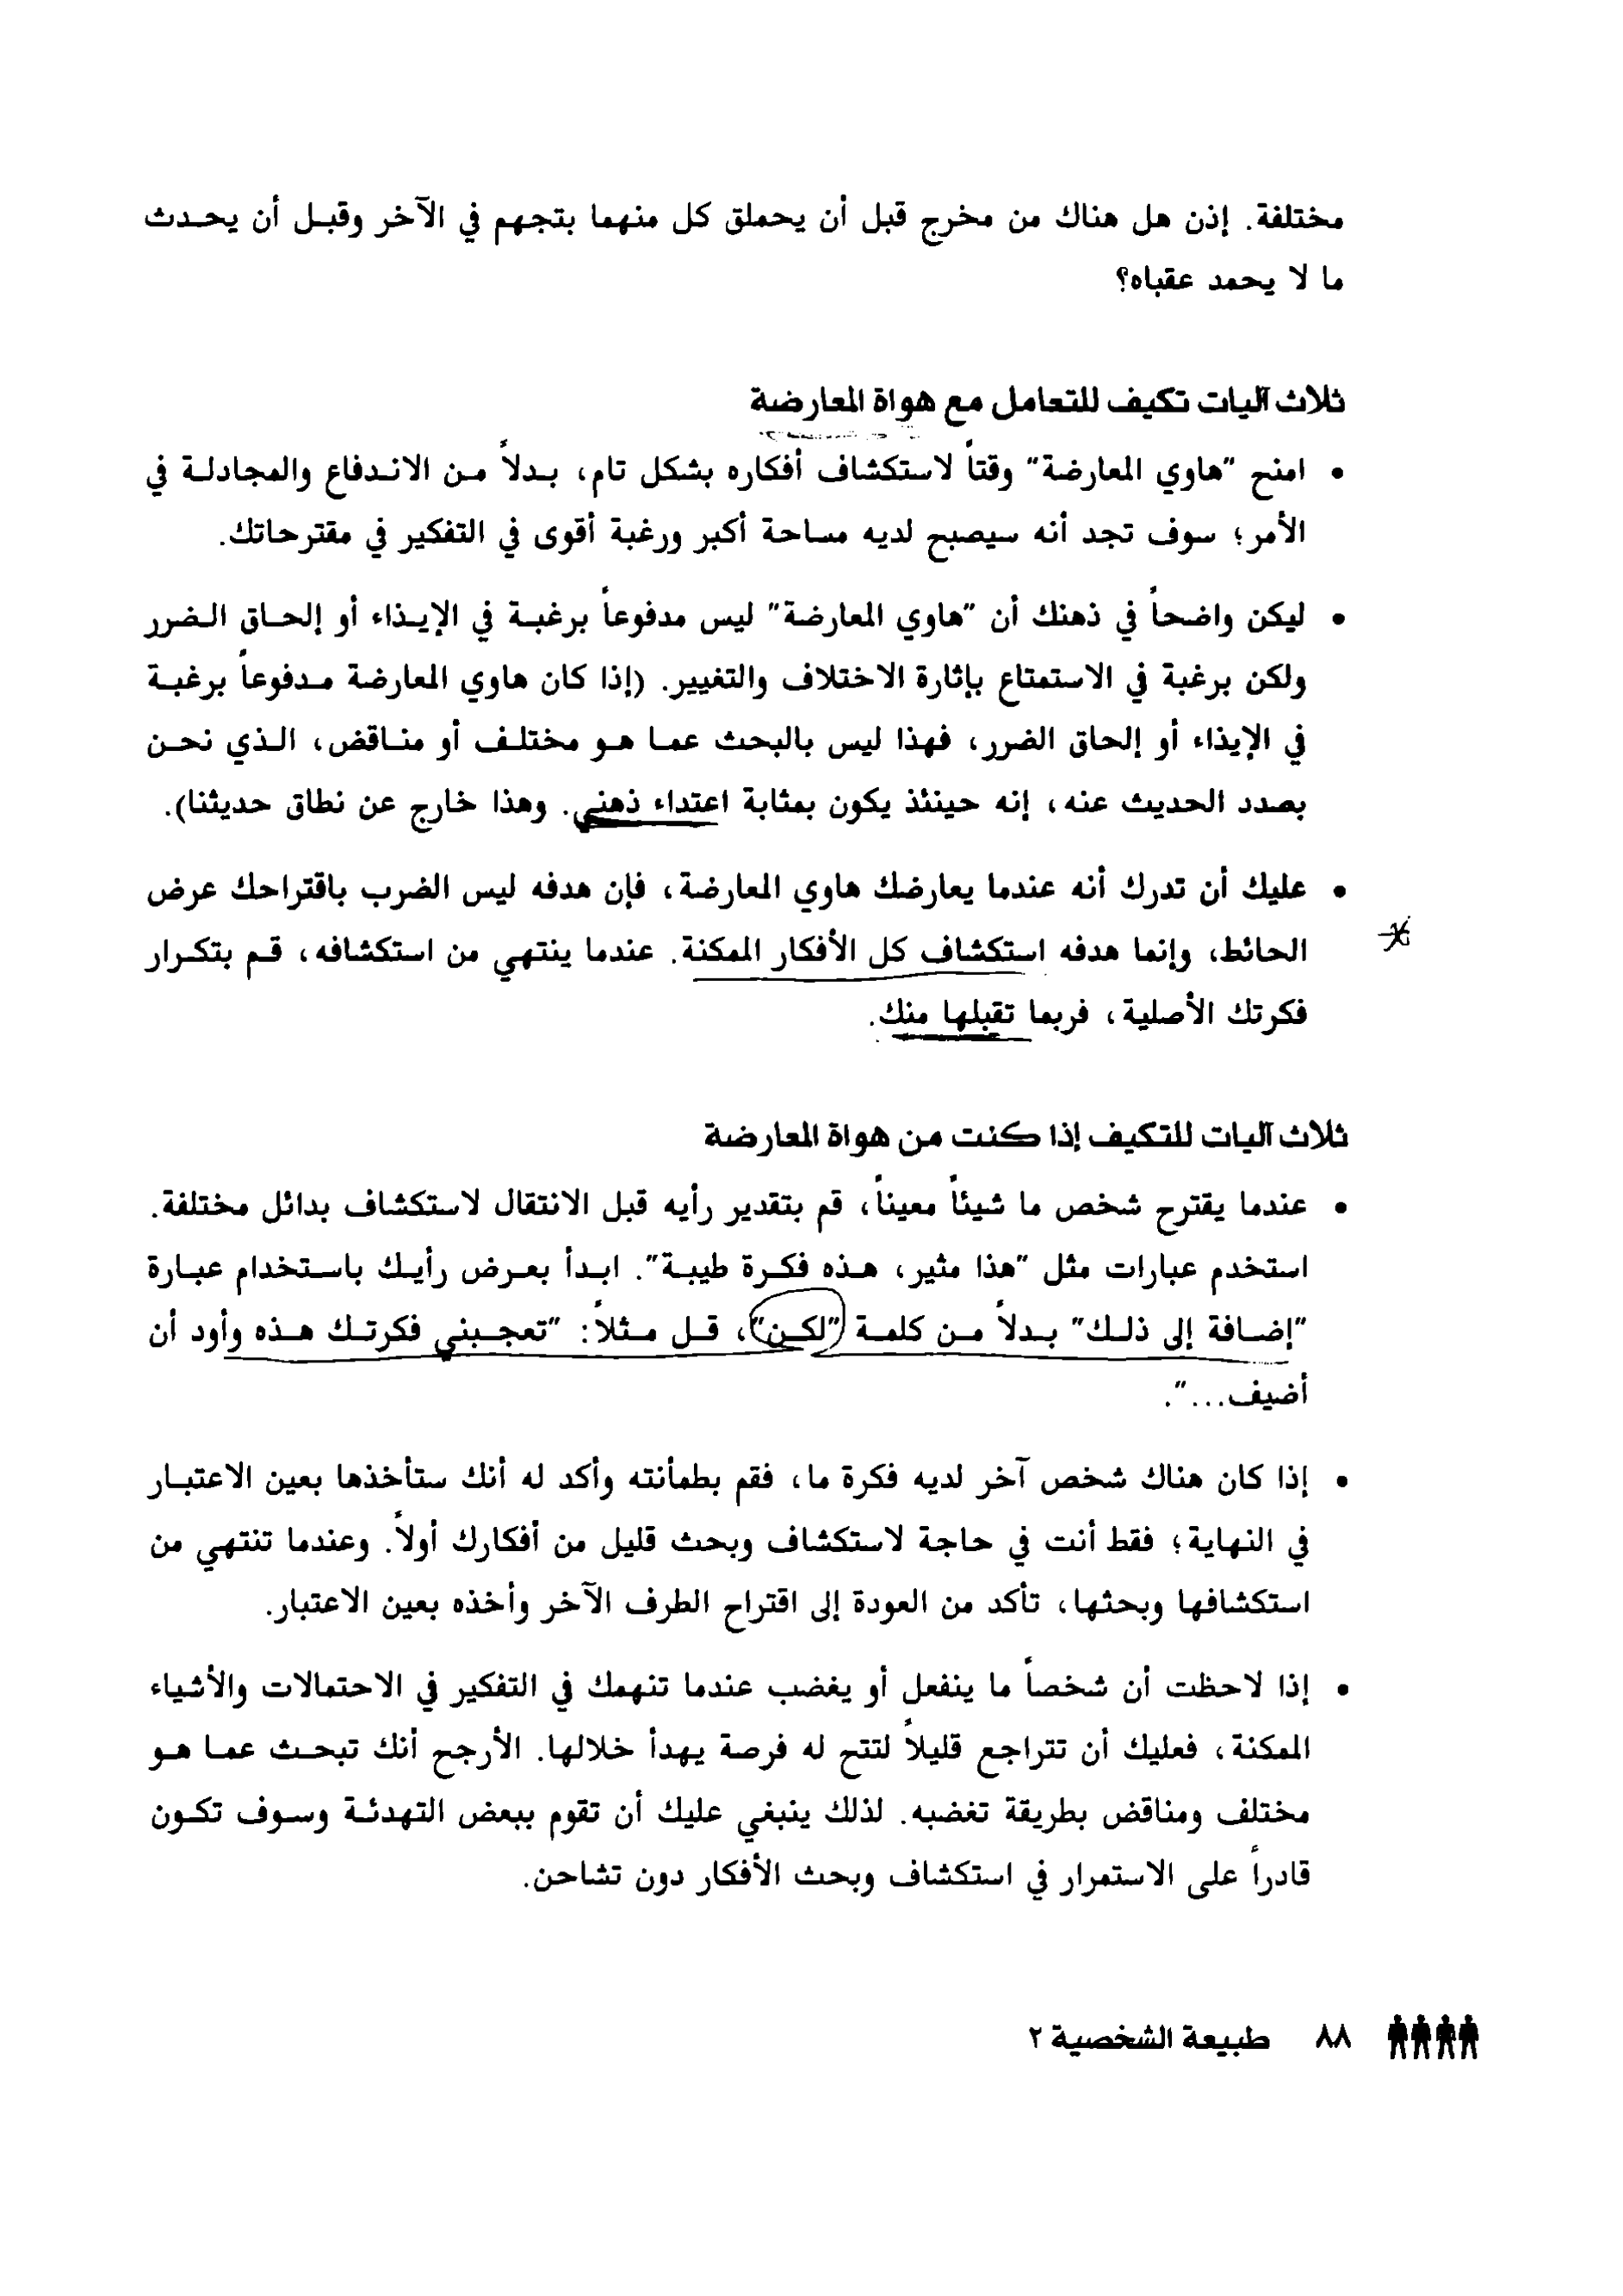 مختلفة. إذن هل هناك من مخرج قبل أن يحملق كل منهما بتجهم في الآخر وقبل أن يحدث
ما لا يحمد عقباه؟
ثلاث آليات تكيف للتعامل مع هواة المعارضة
• امنح "هاوي المعارضة" وقتاً لاستكشاف أفكاره بشكل تام، بدلاً من الاندفاع والمجادلة في
الأمر؛ سوف تجد أنه سيصبح لديه مساحة أكبر ورغبة أقوى في التفكير في مقترحاتك.
• ليكن واضحاً في ذهنك أن "هاوي المعارضة" ليس مدفوعاً برغبة في الإيذاء أو إلحاق الضرر
ولكن برغبة في الاستمتاع بإثارة الاختلاف والتغيير. (إذا كان هاوي المعارضة مدفوعاً برغبة
في الإيذاء أو إلحاق الضرر، فهذا ليس بالبحث عما هو مختلف أو مناقض، الذي نحن
بصدد الحديث عنه، إنه حينئذ يكون بمثابة اعتداء ذهني. وهذا خارج عن نطاق حديثنا).
• عليك أن تدرك أنه عندما يعارضك هاوي المعارضة، فإن هدفه ليس الضرب باقتراحك عرض
الحائط، وإنما هدفه استكشاف كل الأفكار الممكنة. عندما ينتهي من استكشافه، قم بتكرار
فكرتك الأصلية، فربما تقبلها منك.
ثلاث آليات للتكيف إذا كنت من هواة المعارضة
• عندما يقترح شخص ما شيئاً معيناً، قم بتقدير رأيه قبل الانتقال لاستكشاف بدائل مختلفة.
استخدم عبارات مثل "هذا مثير، هذه فكرة طيبة". ابدأ بعرض رأيك باستخدام عبارة
"إضافة إلى ذلك" بدلاً من كلمة "لكن"، قل مثلاً: "تعجبني فكرتك هذه وأود أن
أضيف...".
• إذا كان هناك شخص آخر لديه فكرة ما، فقم بطمأنته وأكد له أنك ستأخذها بعين الاعتبار
في النهاية؛ فقط أنت في حاجة لاستكشاف وبحث قليل من أفكارك أولاً. وعندما تنتهي من
استكشافها وبحثها، تأكد من العودة إلى اقتراح الطرف الآخر وأخذه بعين الاعتبار.
• إذا لاحظت أن شخصاً ما ينفعل أو يغضب عندما تنهمك في التفكير في الاحتمالات والأشياء
الممكنة، فعليك أن تتراجع قليلاً لتتح له فرصة يهدأ خلالها. الأرجح أنك تبحث عما هو
مختلف ومناقض بطريقة تغضبه. لذلك ينبغي عليك أن تقوم ببعض التهدئة وسوف تكون
قادراً على الاستمرار في استكشاف وبحث الأفكار دون تشاحن.
٨٨ طبيعة الشخصية ٢